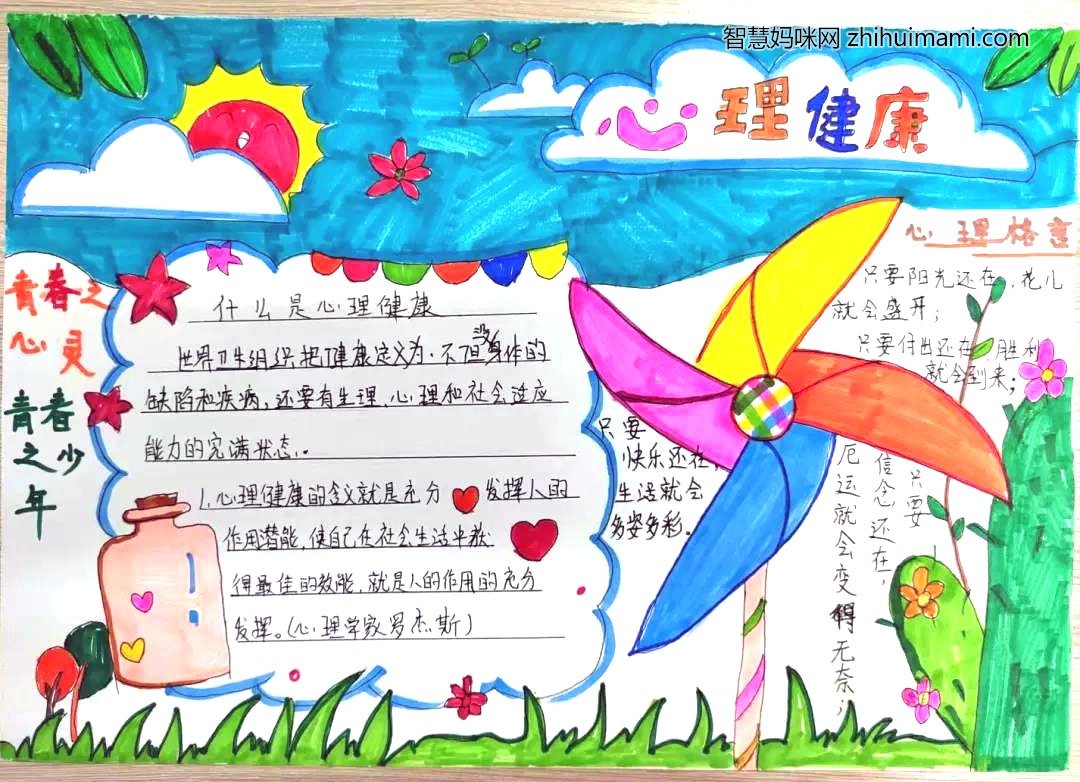 智慧妈咪网 zhihuimami.com
心理健康
青春之
心灵
青春
之少
年
什么是心理健康
世界卫生组织把健康定义为.不但没身体的
缺陷和疾病,还要有生理、心理和社会适应
能力的完满状态,.
1.心理健康的含义就是充分 发挥人的
作用潜能,使自己在社会生活中获
得最佳的效能,就是人的作用的充分
发挥。(心理学家罗杰斯)
心理格言
只要阳光还在,花儿
就会盛开;
只要付出还在,胜利
就会到来;
只要
信念还在,
厄运就会变得无奈;
只要
快乐还在,
生活就会
多姿多彩.